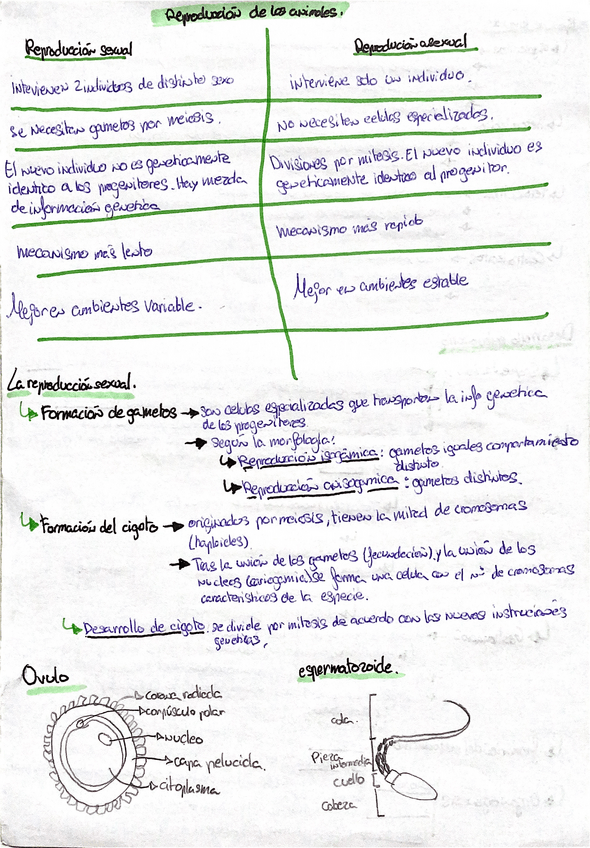 Reproducción de los animales.
Reproducción sexual
Reproducción asexual
Intevienen 2 individuos de distinto sexo
interviene solo un individuo.
Se necesitan gametos por meiosis.
No necesiten celulas especializadas.
El nuevo individuo no es geneticamente
identico a los progenitores. Hay mezcla
de información genetica
Divisiones por mitosis. El nuevo individuo es
geneticamente identico al progenitor.
mecanismo más lento
mecanismo más rapido
Mejor en ambientes variable.
Mejor en ambientes estable
La reproducción sexual.
Formación de gametos → son celulas espcializadas que transportan la info genetica
de los progenitores
→ según la morfología:
Reproducción isogámica: gametos iguales comportamiento
distinto.
Reproducción anisogamica: gametos distintos.
Formación del cigoto → originados por meiosis, tienen la mitad de cromosomas
(haploides)
→ Tras la unión de los gametos (fecundación) y la unión de los
nucleos (cariogamia) se forma una celula con el nº de cromosomas
caracteristicos de la especie.
Desarrollo de cigoto: se divide por mitosis de acuerdo con las nuevas instrucciones
geneticas,
Ovulo
corona radiada
corpúsculo polar
nucleo
capa pelucida.
citoplasma
espermatozoide.
cola.
Pieza
intermedia
cuello
cabeza